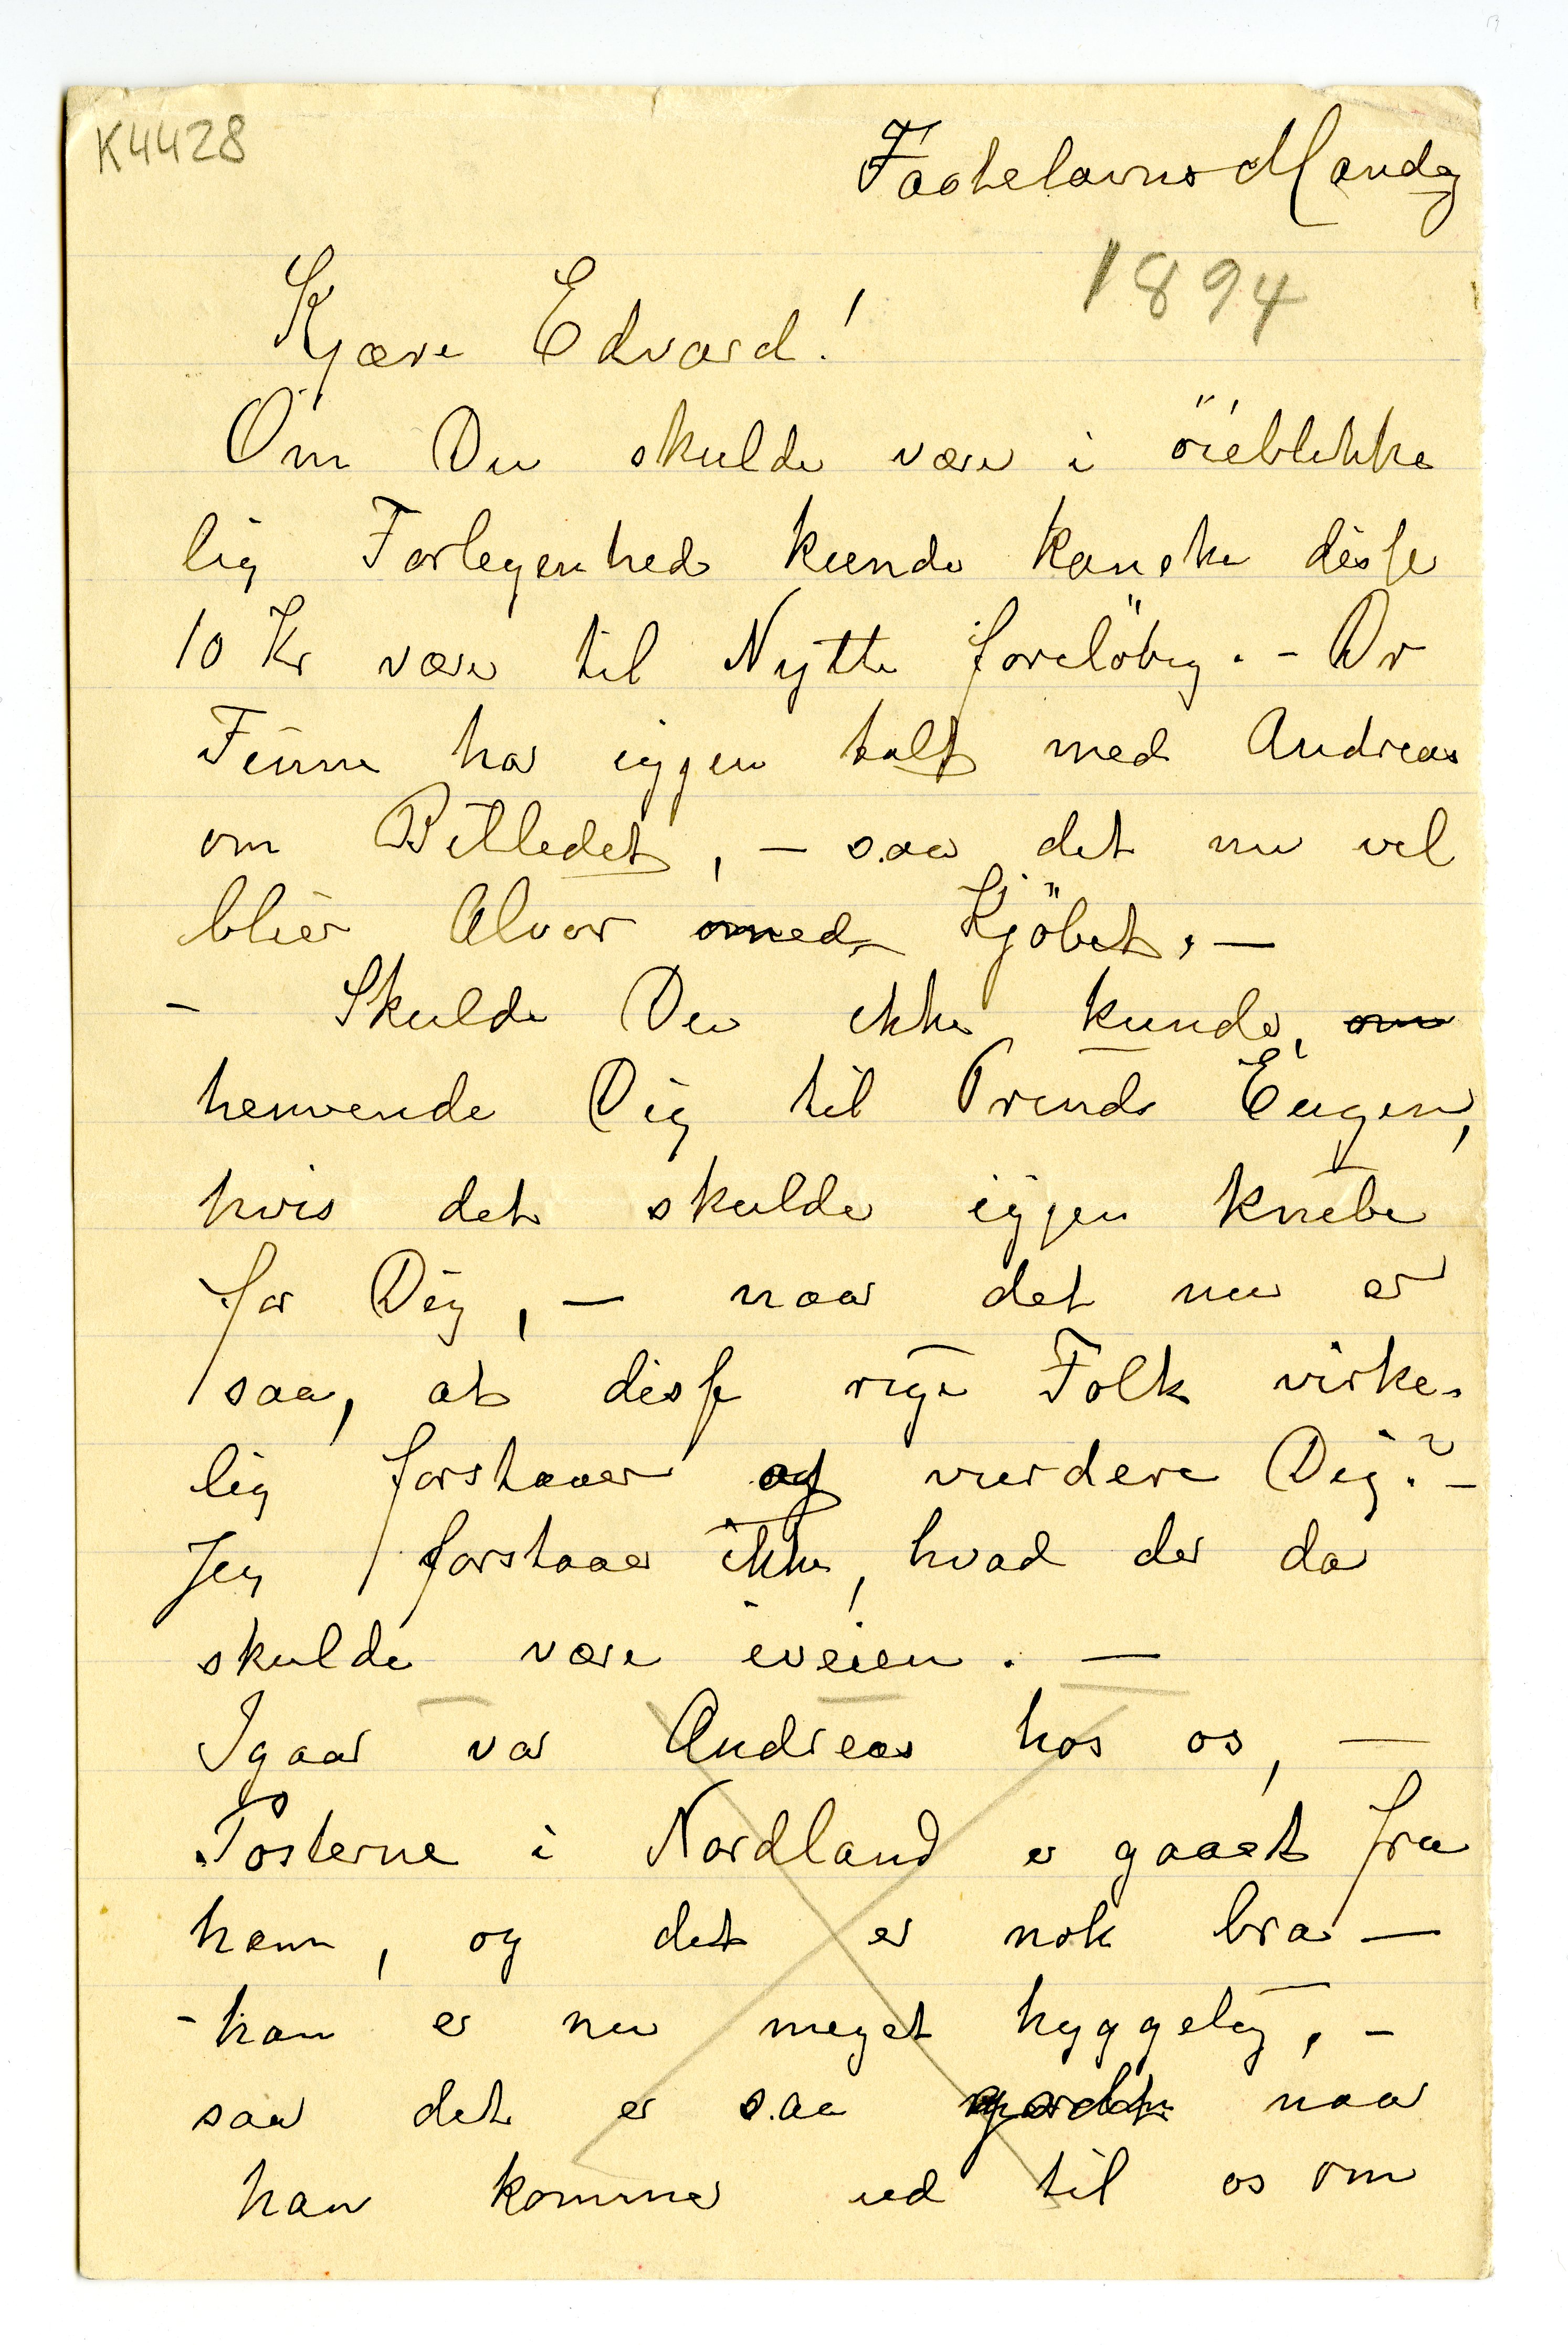 K4428
Fastelavns Mandag
1894
Kjære Edvard!
Om Du skulde være i öieblikke
lig Forlegenhed kunde kanske disse
10 Kr være til Nytte forelöbig. - Dr
Finne har iggjen talt med Andreas
om Billedet, — saa det nu vel
blier Alvor med Kjöbet. —
- Skulde Du ikke kunde, om
henvende Dig til Prinds Eugen,
hvis det skulde iggjen knibe
for Dig, — naar det nu er
saa, at disse rige Folk virke-
lig forstaaer og vurdere Dig? -
Jeg forstaaer ikke, hvad der da
skulde være iveien. —
Igaar var Andreas hos os, —
Posterne i Nordland er gaaet fra
ham, og det er nok bra —
- han er nu meget hyggelig, -
saa det er saa naar
han kommer ud til os om